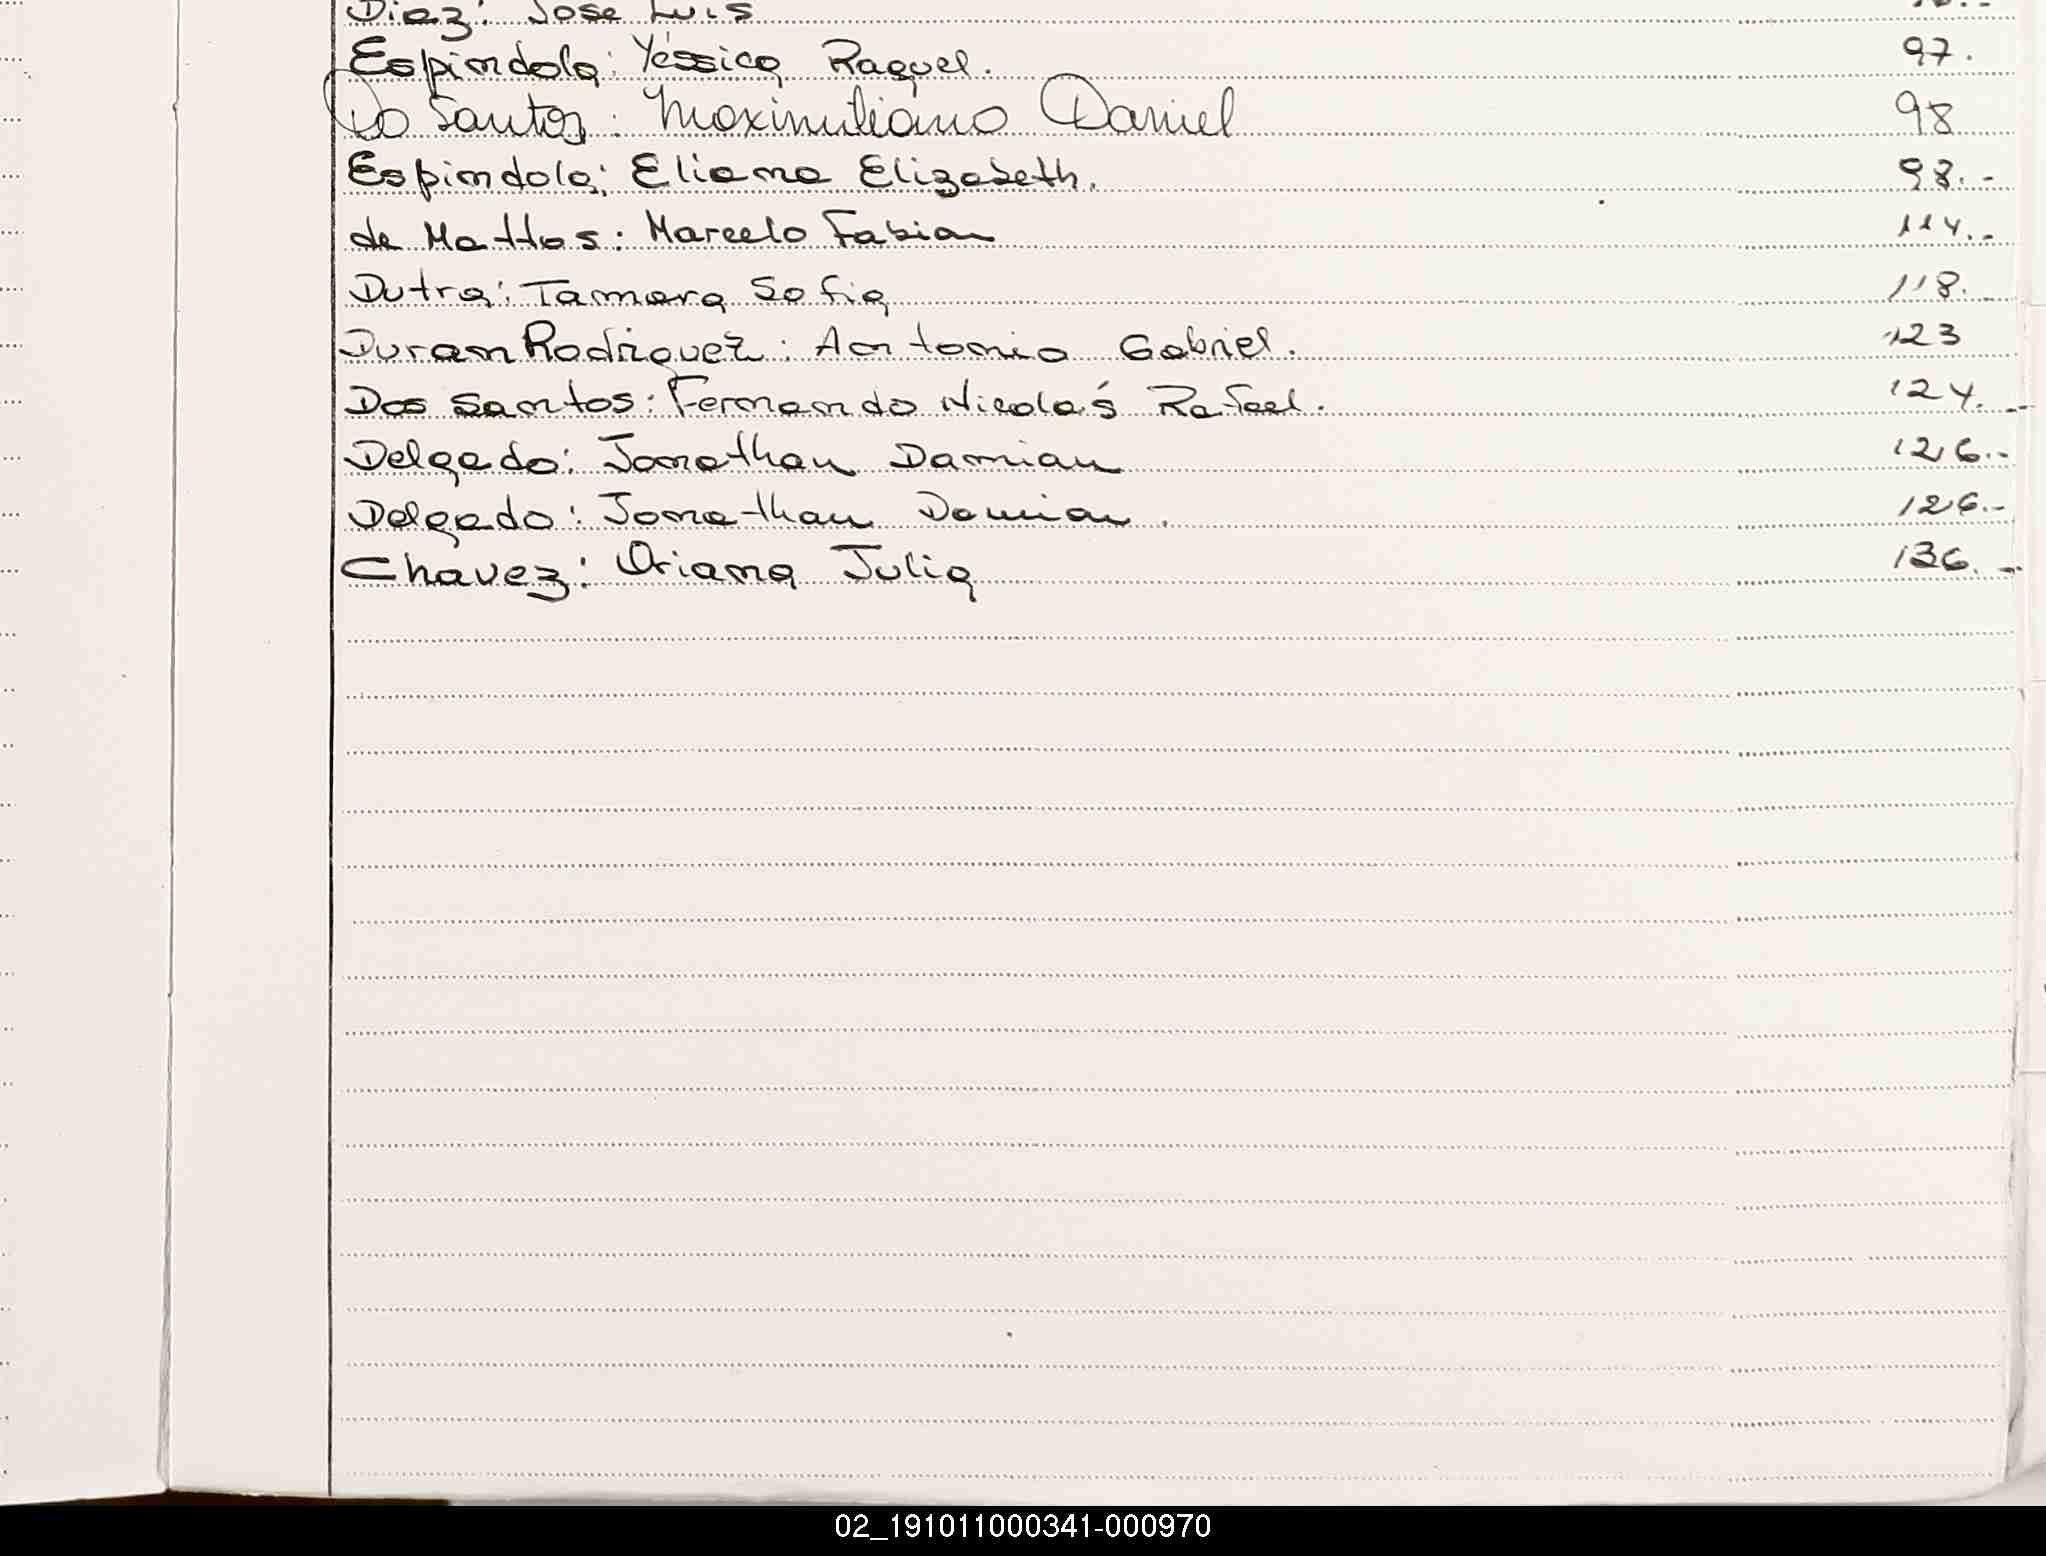 Diaz: Jose Luis
Espindola: Yéssica Raquel. 97.
Do Santos: Maximiliano Daniel 98
Espindola: Eliana Elizabeth. 98.-
de Mattos: Marcelo Fabian 114.-
Dutra: Tamara Sofia 118.
Duran Rodriguez: Antonio Gabriel. 123
Dos Santos: Fernando Nicolás Rafael. 124.-
Delgado: Jonathan Damian 126.-
Delgado: Jonathan Damian. 126.-
Chavez: Oriana Julia 136.-
02_191011000341-000970